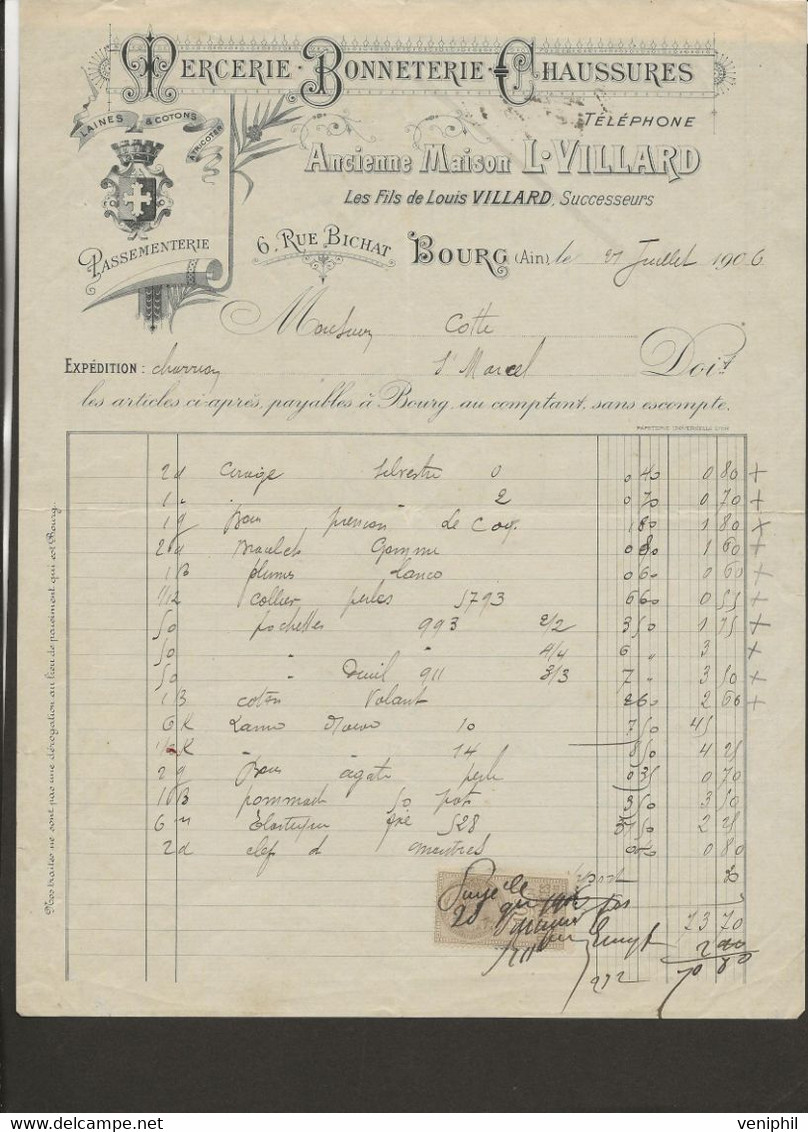 MERCERIE - BONNETERIE - CHAUSSURES
LAINES & COTONS
A TRICOTER
TÉLÉPHONE
Ancienne Maison L. VILLARD
Les Fils de Louis VILLARD, Successeurs
PASSEMENTERIE
6, RUE BICHAT BOURG (Ain), le 27 Juillet 1906
Monsieur Cotte
EXPÉDITION : St Marcel Doit
les articles ci-après, payables à Bourg, au comptant, sans escompte.
PAPETERIE UNIVERSELLE LYON
Nos traites ne sont pas une dérogation au lieu de paiement qui est Bourg.
2 d Cirage Silvestre 0 0 40 0 80 +
1 " 2 0 70 0 70 +
1 g pression de Coq 1 80 1 80 +
2 d Gomme 0 80 1 60 +
1 B plumes blanco 0 60 0 60 +
1/12 collier perles 5793 6 60 0 55 +
50 pochettes 993 2/2 3 50 1 75 +
50 " " 4/4 6 " 3 +
50 " Deuil 911 3/3 7 " 3 50 +
1 B coton Volant 2 60 2 60 +
6 K Laine 10 7 50 45
K " 14 8 50 4 25
2 g agate perle 0 35 0 70
10 B pommade 50 pots 3 50 3 50
6 m 528 37 50 2 25
2 d clef d 0 80
73 70
70 80
veniphil